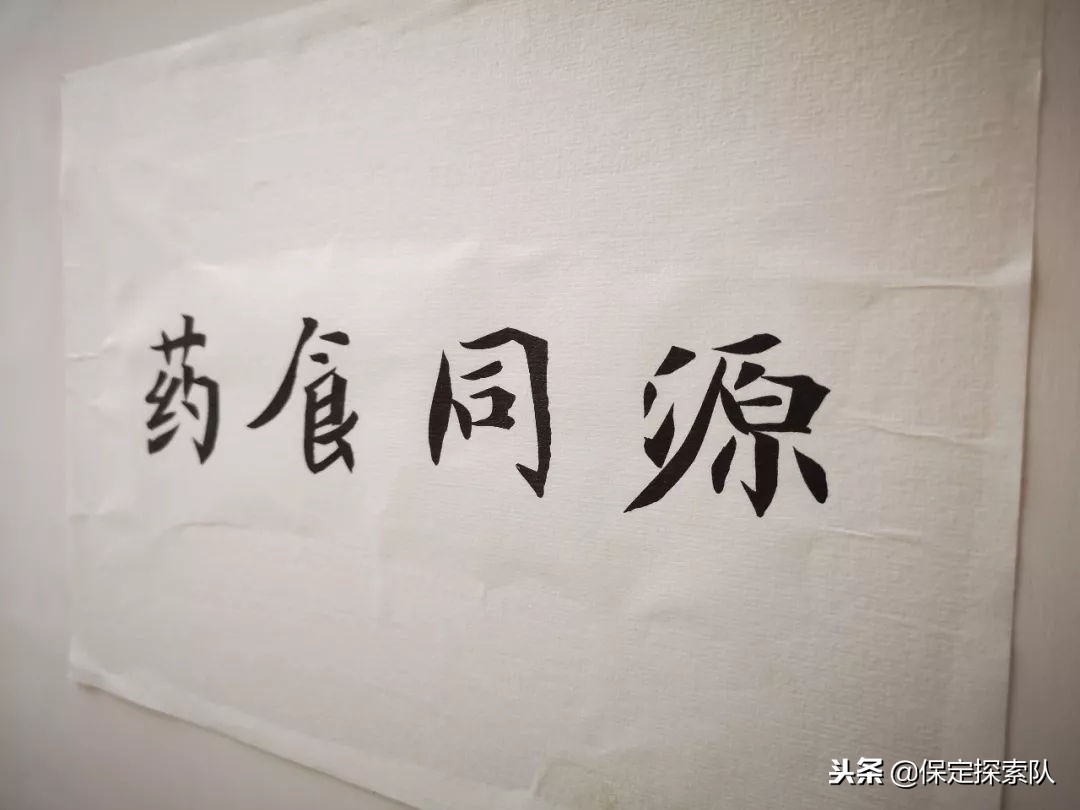 药食同源
头条 @保定探索队